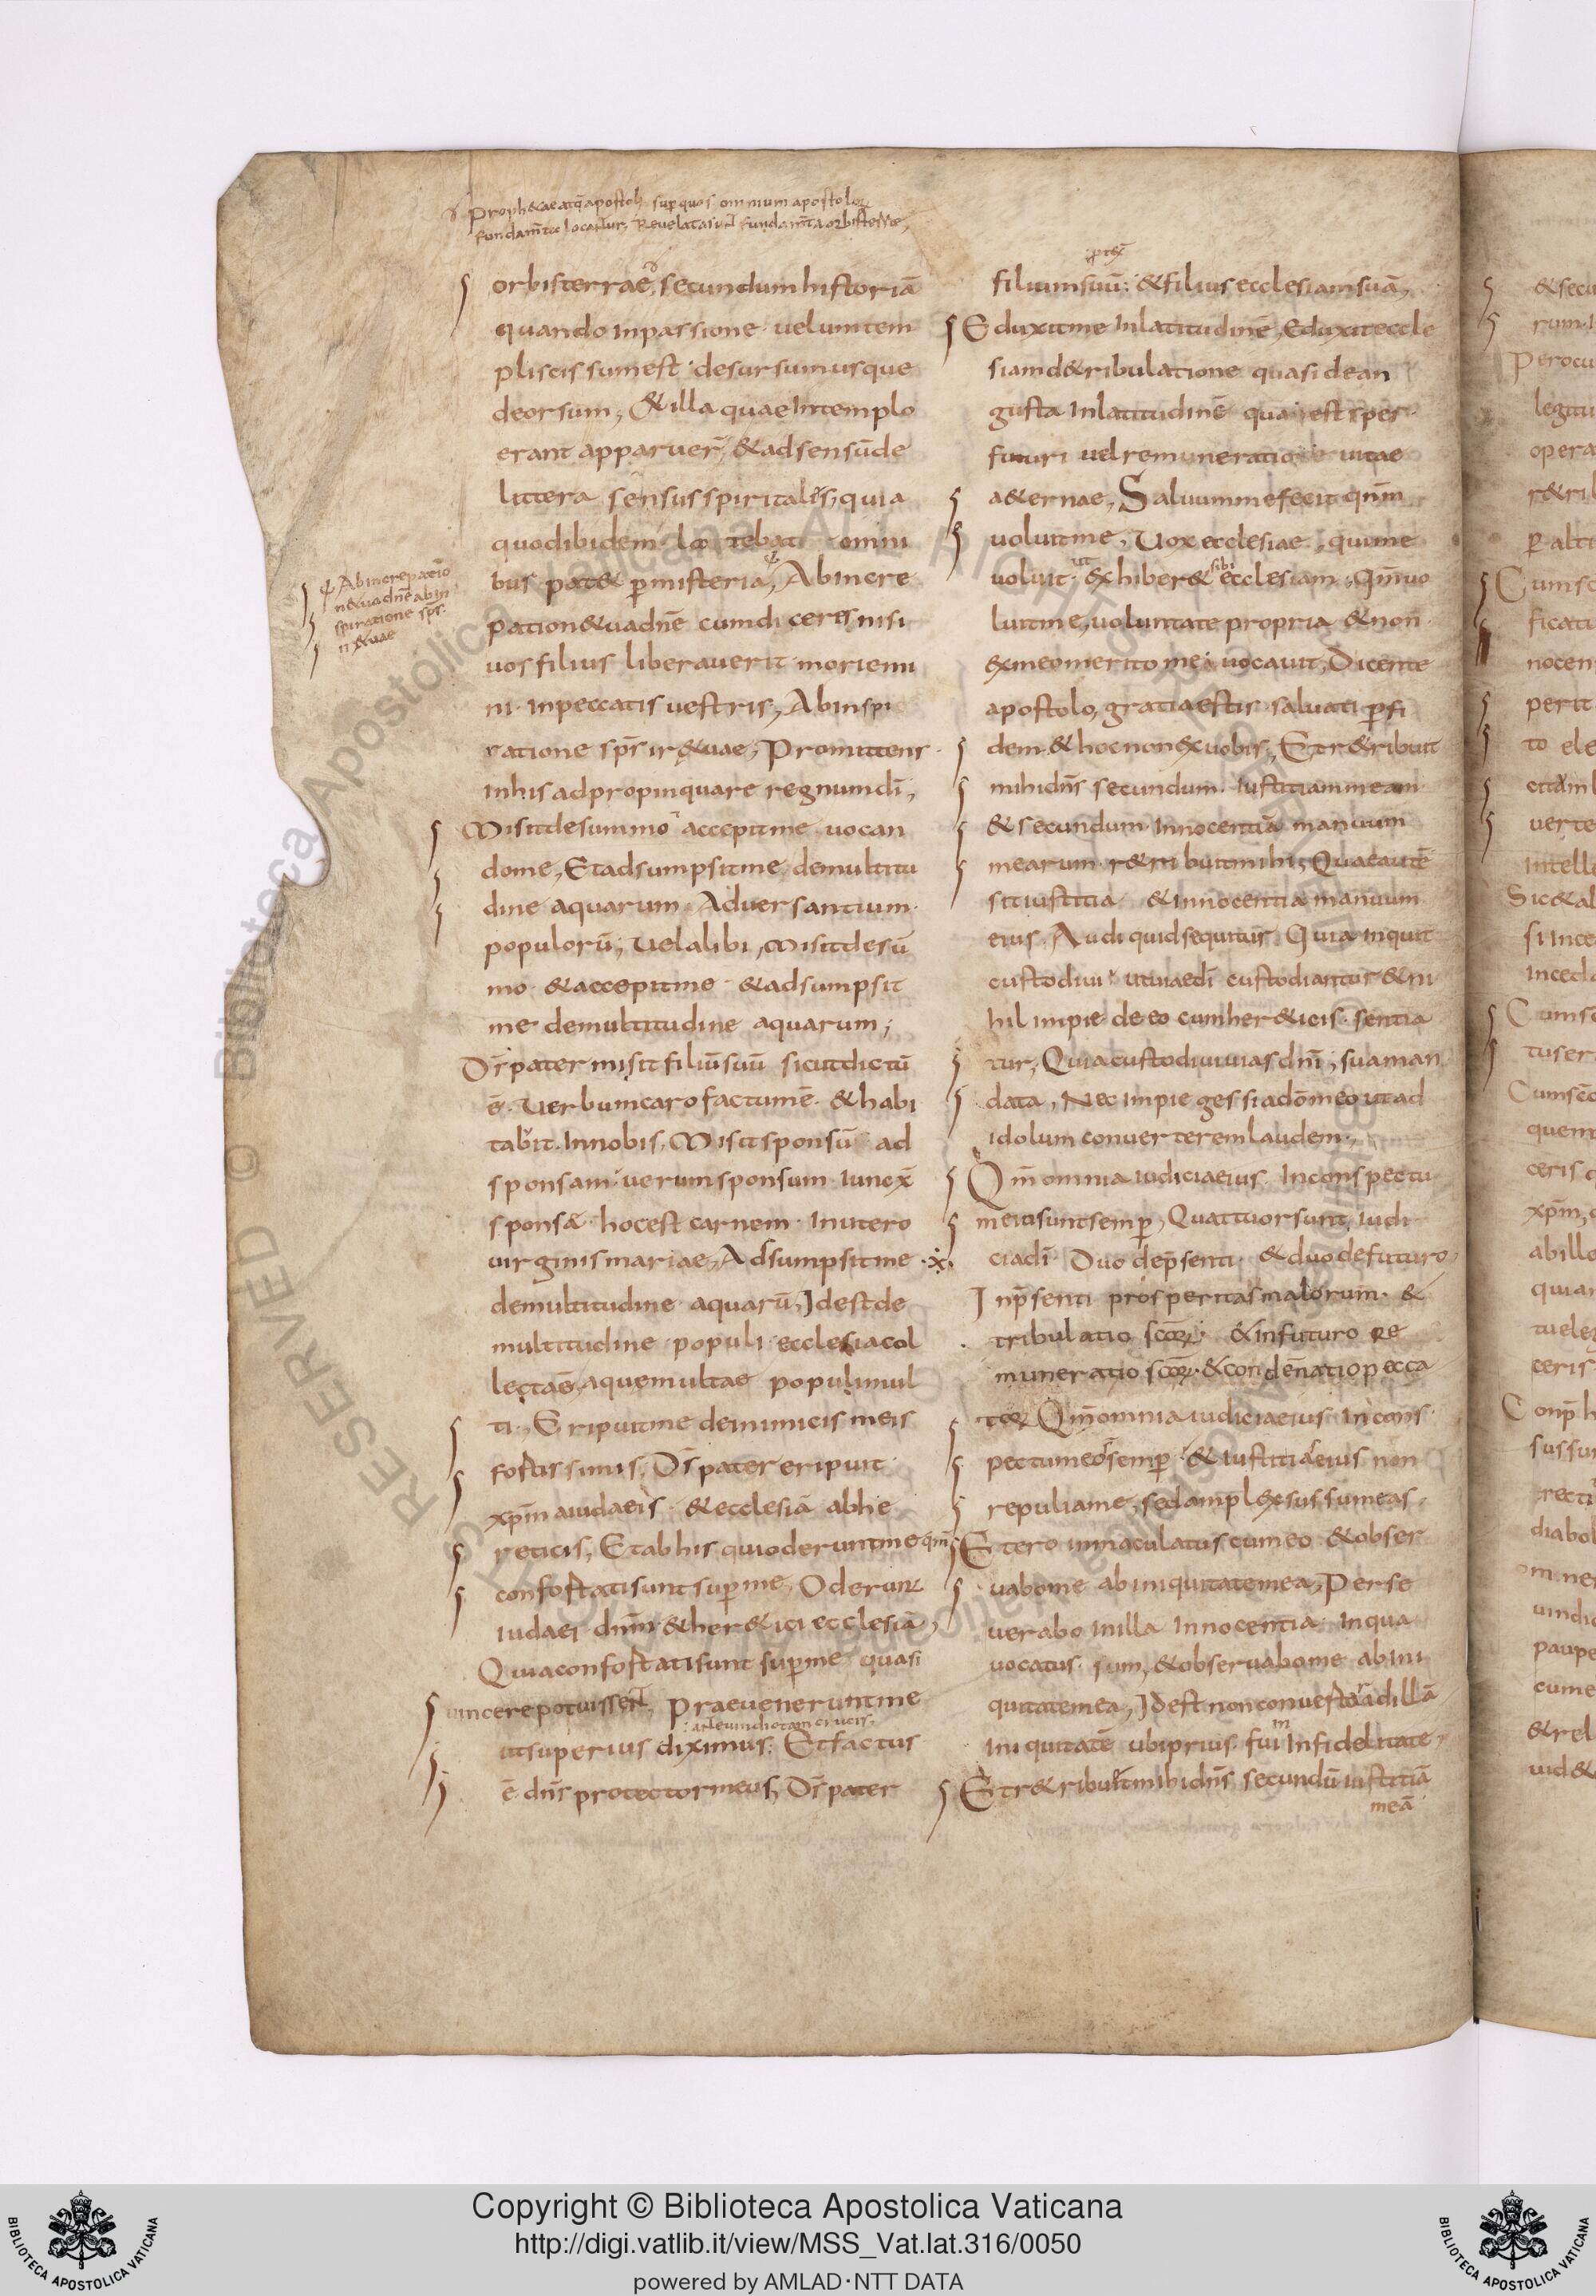 Proph&ae atq; apostoli sup quos omnium apostolorꝝ
fundam̄ta locantur; Revelata sunt fundam̄ta orbis terrae,
orbisterrae, secundum historiā
quando inpassione velum tem
pli scissum est desursum usque
deorsum, & illa quae intemplo
erant apparuer̄, & adsensūde
littera sensus spiritalis, quia
quod ibidem tebat omni
bus pat& p misteria, Abincre
pation&uadnē cum diceres nisi
vos filius liberaverit moriemi
ni inpeccatis vestris, Abinspi
ratione sps̄ ir&uae, Promittens
inhis adpropinquare regnum dī,
Misit desummo accepit me vocan
dome, Et adsumpsit me demultitu
dine aquarum Adversantium
populorū, Vel alibi, misit desū
mo & accepit me & adsumpsit
me demultitudine aquarum;
Ds̄ pater misit filiū suū sicut dictū
ē. Verbum caro factum ē & habi
tabit innobis, Misit sponsū ad
sponsam verum sponsum iunex̄
sponsā hocest carnem inutero
virginis mariae, Adsumpsit me
demultitudine aquarū, Idest de
multitudine populi ecclesia col
lectae, aque multae populi mul
ti, Eripuit me deinimicis meis
fortissimis, Ds̄ pater eripuit
xpm̄ aiudaeis & ecclesiā abhe
reticis, Et abhis qui oderunt me qm̄
confortati sunt super me, Oderunt
iudaei dn̄m & her&ici ecclesiā,
Quia confortati sunt sup me quasi
vincere potuissent, Praevenerunt me
ut superius diximus; Et factus
ē dn̄s protector meus, Ds̄ pater
Abincrepatio
n&uadnē abin
spiratione sps̄
ir&uae
filium suū; & filius ecclesiam suā,
Eduxit me inlatitudinē, Eduxit eccle
siam d&ribulatione quasi dean
gusta inlatitudinē quae est spes
futuri vel remuneratio vitae
a&ernae, Salvum me fecit qnm̄
voluit me, Vox ecclesiae, qui me
voluit ut exhiber& sibi ecclesiam, Qnm̄ vo
luit me, voluntate propria & non
ex meo merito me vocavit, Dicente
apostolo, gratia estis salvati p fi
dem & hoc non ex vobis, Et r&ribuit
mihi dn̄s secundum iustitiam meam
& secundum innocentiā manuum
mearum r&ribuit mihi, Quae autē
sit iustitia & innocentia manuum
eius Audi quid sequitur Quia inquit
custodivi ut viae dī custodiantur & ni
hil impie de eo cum her&icis sentia
tur, Quia custodivi vias dnī, sua man
data, Nec impie gessi a dō meo ut ad
idolum converterem laudem,
Qm̄ omnia iudicia eius inconspectu
meo sunt semp, Quattuor sunt iudi
cia dī Duo depsenti & duo defuturo
Inpsenti prosperitas malorum &
tribulatio scōrꝝ & infuturo re
muneratio scōrꝝ & condēnatio pecca
torꝝ Qm̄ omnia iudicia eius incons
pectu meo semp & iustitia eius non
repuli a me, sed amplexus sum eas
Et ero inmaculatus cum eo & obser
vabo me ab iniquitate mea, Perse
verabo inilla innocentia inqua
vocatus sum, & observabo me ab ini
quitate mea, Idest non convertar ad illā
iniquitatē ubi prius fui in infidelitate,
Et r&ribuit mihi dn̄s secundū iustitiā
meā
Copyright © Biblioteca Apostolica Vaticana
http://digi.vatlib.it/view/MSS_Vat.lat.316/0050
powered by AMLAD·NTT DATA